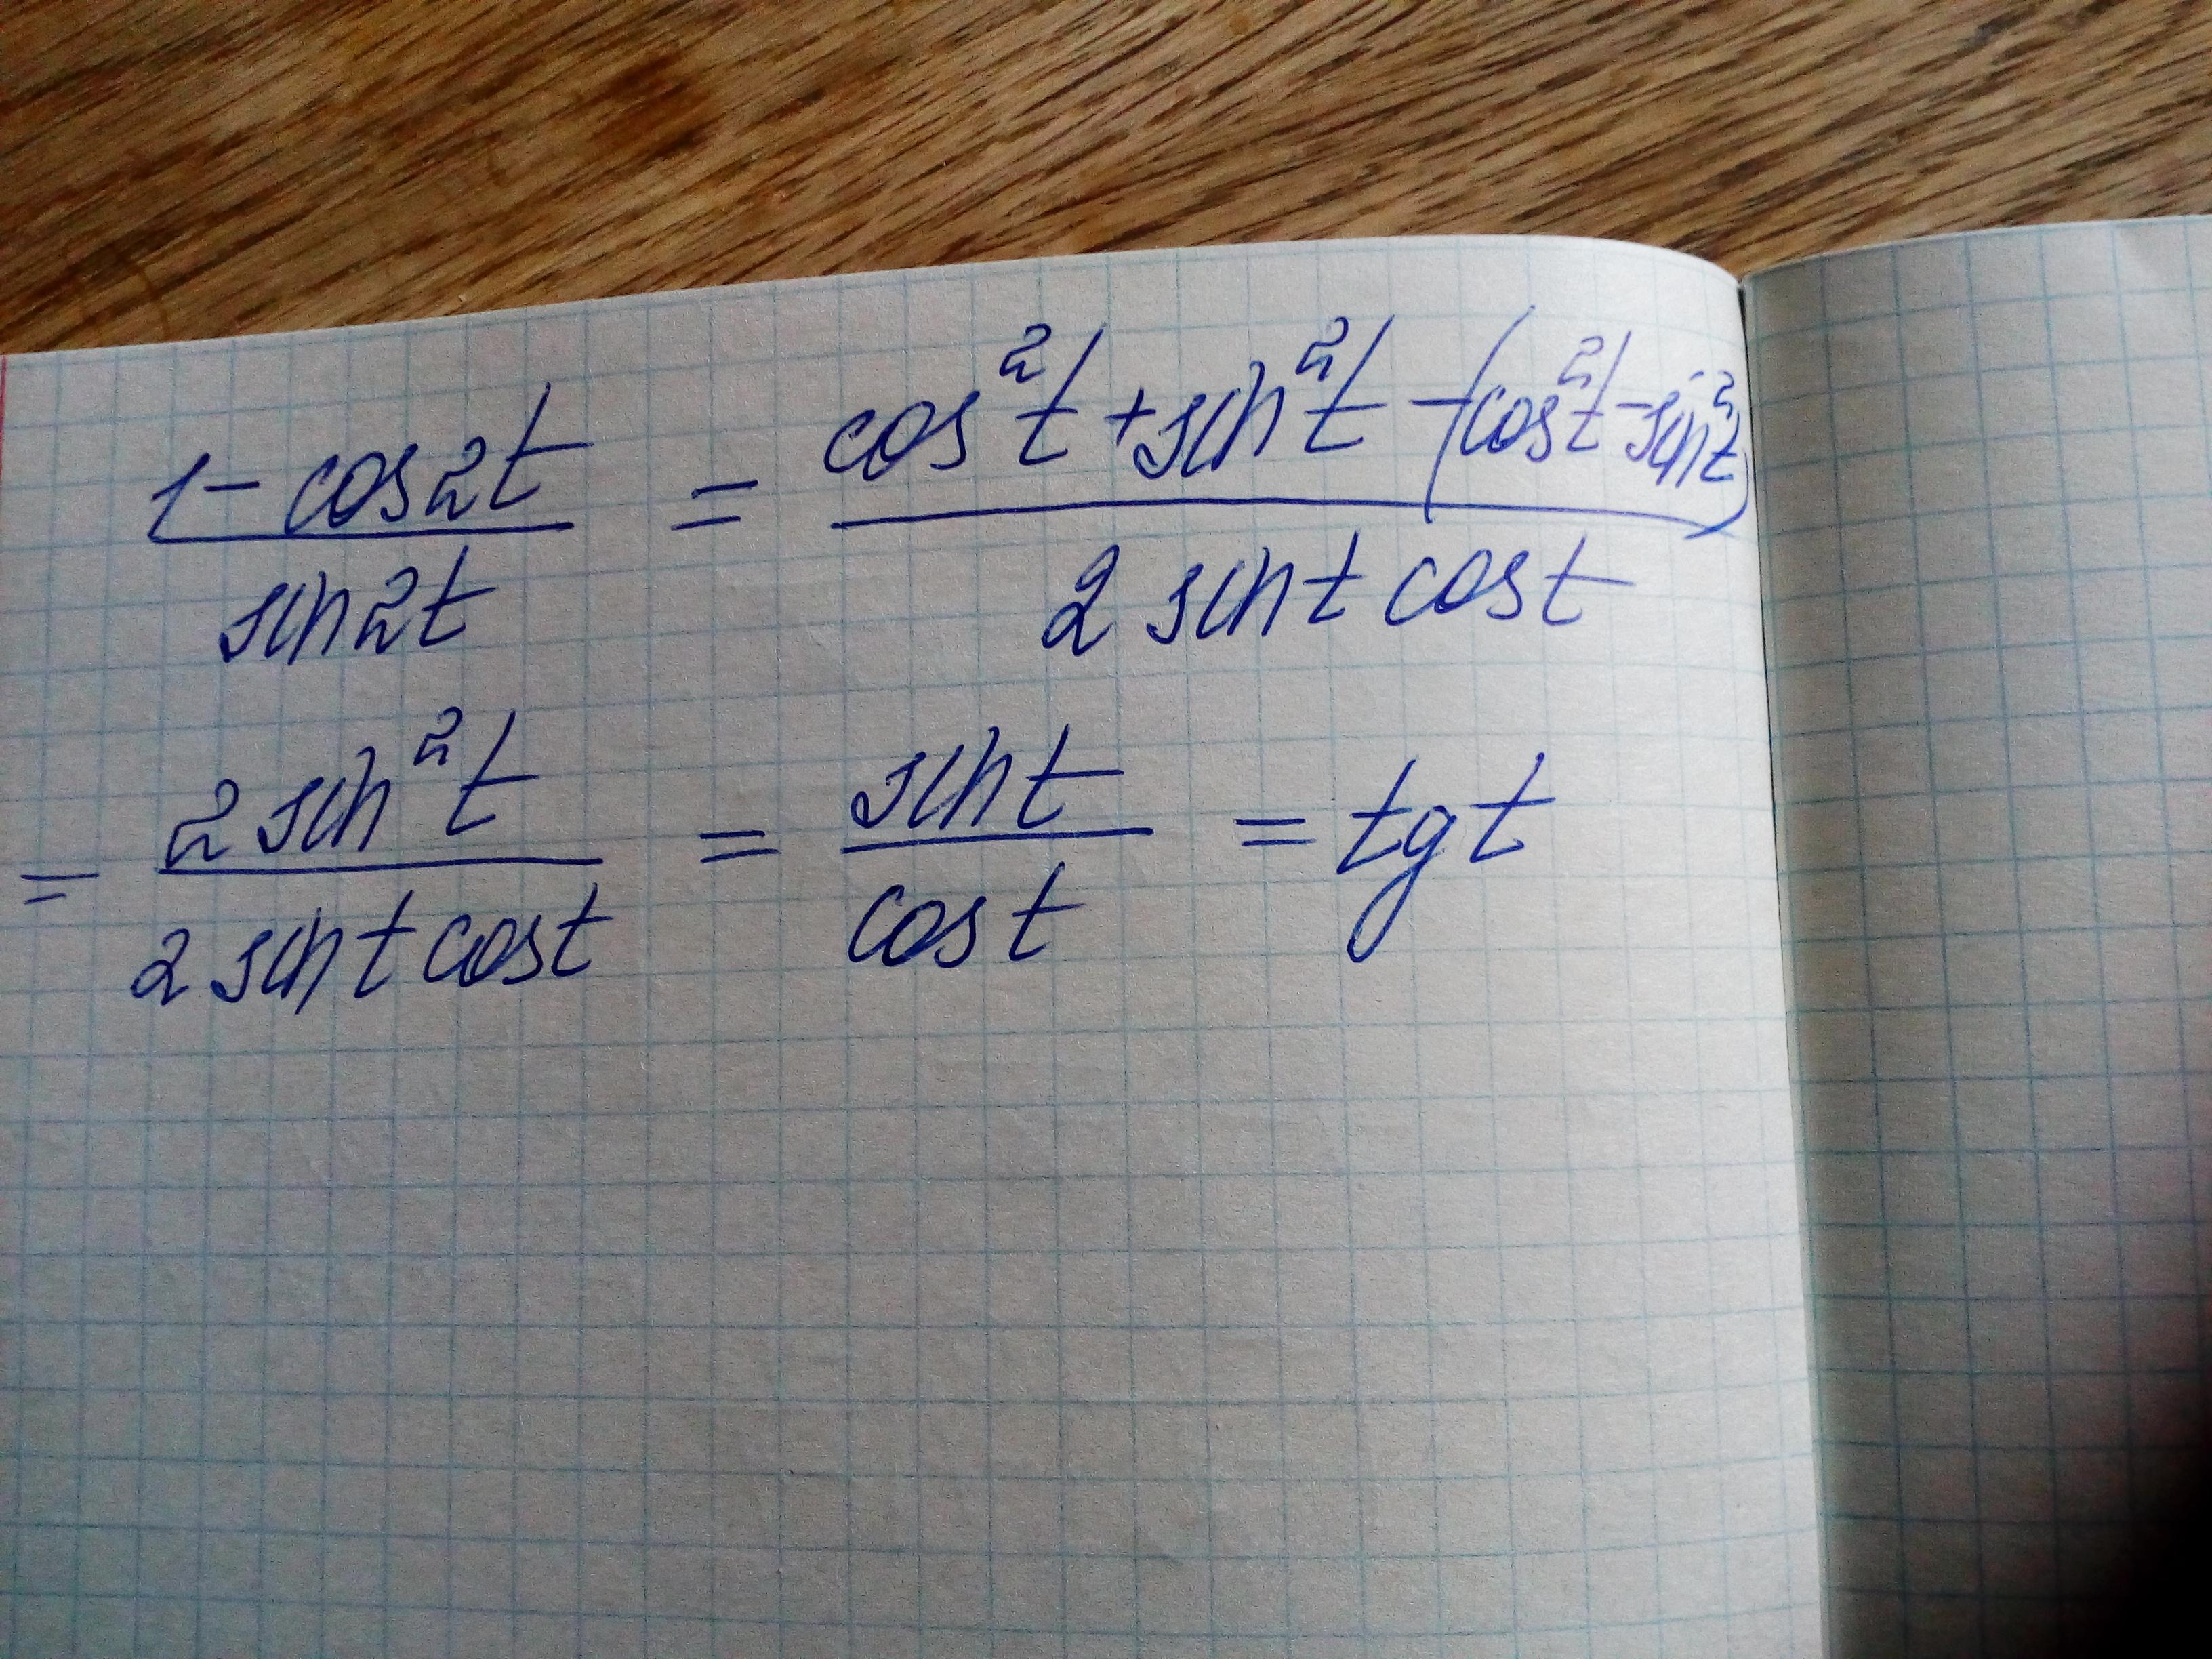 (1 - cos2t)/(sin2t) = (cos²t + sin²t - (cos²t - sin²t))/(2 sint cost)
= (2 sin²t)/(2 sint cost) = (sint)/(cost) = tgt